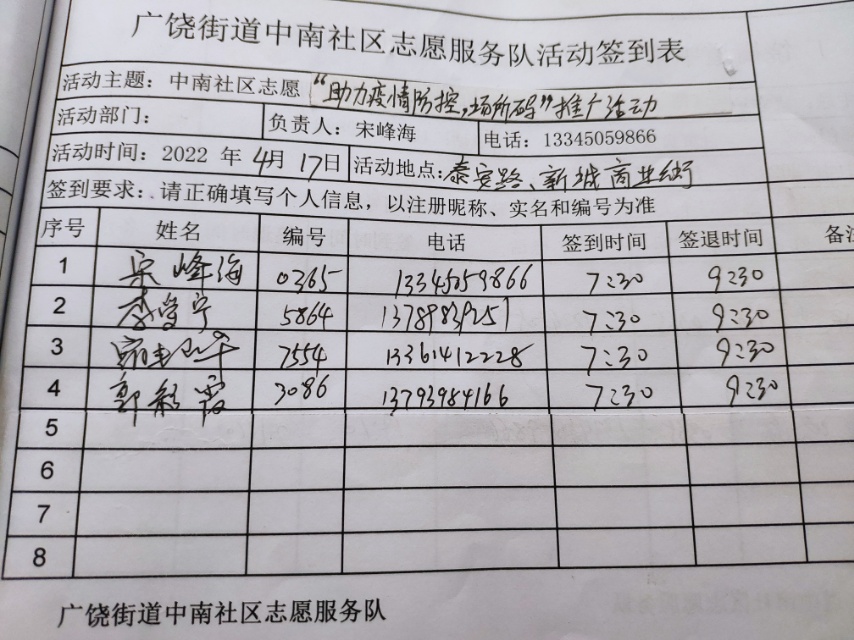 广饶街道中南社区志愿服务队活动签到表
活动主题：中南社区志愿“助力疫情防控，场所码”推广活动
活动部门： 负责人：宋峰海 电话：13345059866
活动时间：2022 年 4月 17日 活动地点：泰安路、新城商业街
签到要求：请正确填写个人信息，以注册昵称、实名和编号为准
序号 姓名 编号 电话 签到时间 签退时间 备注
1 宋峰海 0365 13345059866 7:30 9:30
2 李 宁 5864 7:30 9:30
3 7554 13361412228 7:30 9:30
4 郭彩霞 3086 13793984166 7:30 9:30
5
6
7
8
广饶街道中南社区志愿服务队